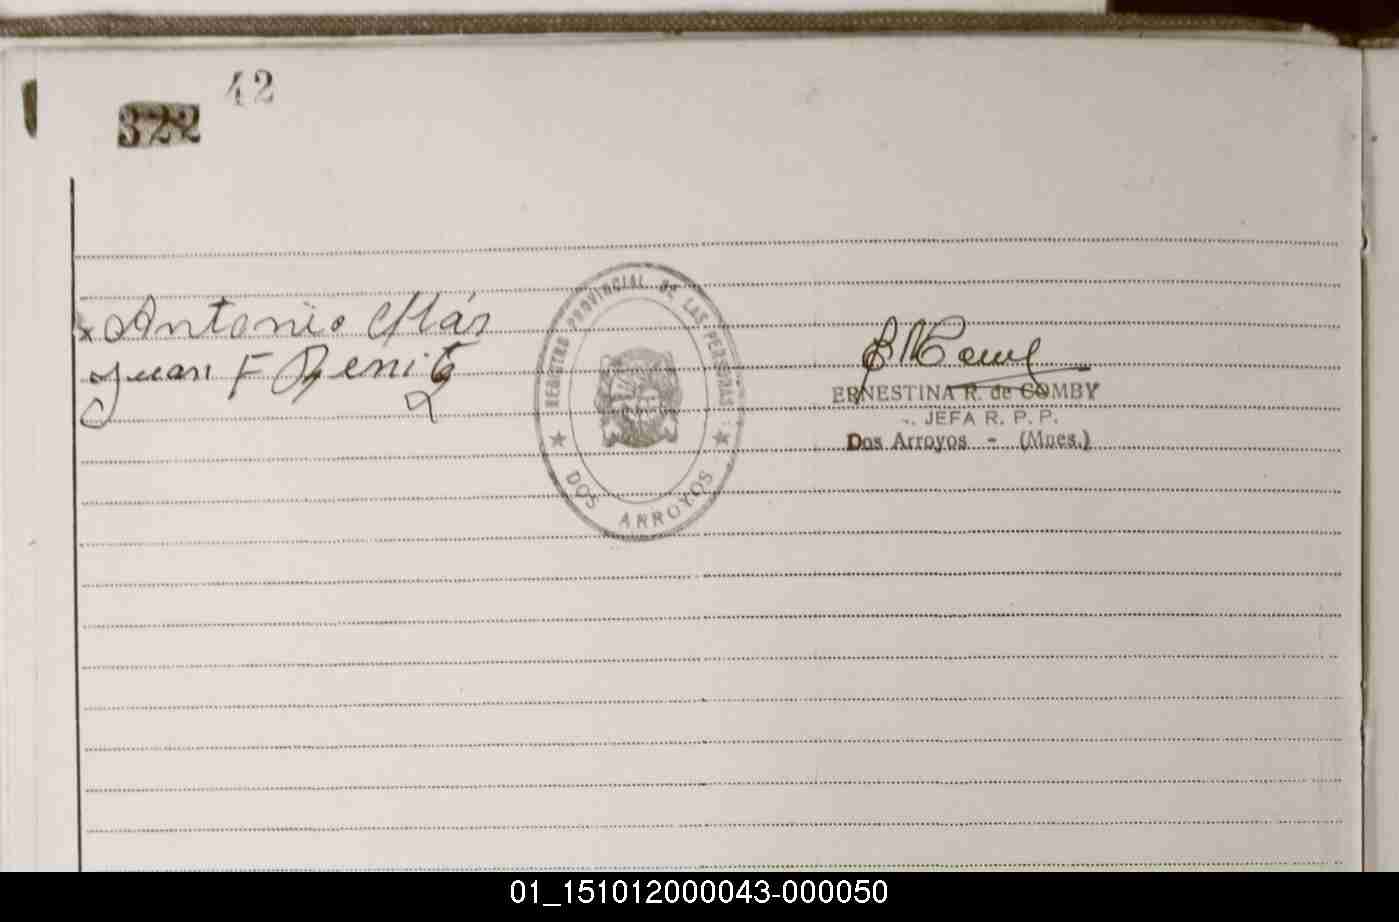 42
322
x Antonio Más
Juan F Benitez
REGISTRO PROVINCIAL DE LAS PERSONAS
★ DOS ARROYOS ★
ERNESTINA R. de COMBY
JEFA R. P. P.
Dos Arroyos - (Mnes.)
01_151012000043-000050